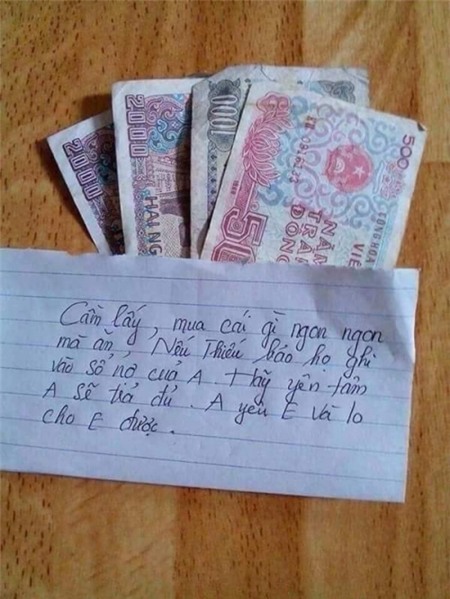 2000
2000
HAI NG
000
500
50
CỘNG HÒA
VIỆ
NĂM
TRĂ
ĐỒNG
Cầm lấy, mua cái gì ngon ngon
mà ăn, Nếu Thiếu bảo họ ghi
vào sổ nợ của A. Hãy yên tâm
A sẽ trả đủ. A yêu E và lo
cho E được.